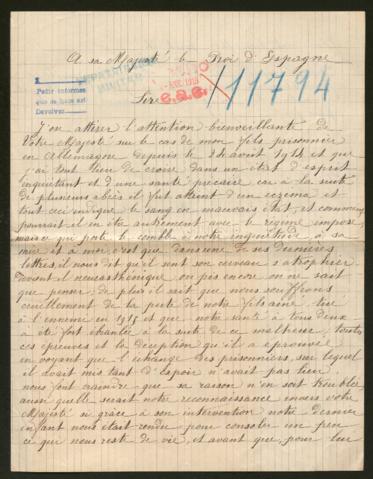 A sa Majesté le Roi d'Espagne
Pedir informes
que se hace así
Devolver
11794
Sire
J'ose attirer l'attention bienveillante de
Votre Majesté sur le cas de mon fils prisonnier
en Allemagne depuis le août 1914 et que
j'ai tout lieu de croire dans un état d'esprit
inquiétant et d'une santé précaire car à la suite
de plusieurs abcès il fut atteint d'un eczéma et
tout ceci indique le sang en mauvais état, et comment
pourrait il en être autrement avec le régime imposé
mais ce qui porte le comble à notre inquiétude à sa
mère et à moi c'est que dans une de ses dernières
lettres, il nous dit qu'il sent son cerveau s'atrophier
devient il neurasthénique ou pis encore on ne sait
que penser, de plus il sait que nous souffrons
cruellement de la perte de notre fils ainé tué
à l'ennemi en 1915 et que notre santé à tous deux
a été fort ébranlée à la suite de ce malheur, toutes
ces épreuves et la déception qu'il a éprouvée
en voyant que l'échange des prisonniers, sur lequel
il avait mis tant d'espoir n'avait pas lieu,
nous font craindre que sa raison n'en soit troublée
aussi quelle serait notre reconnaissance envers votre
Majesté si grâce à son intervention notre dernier
enfant nous était rendu pour consoler un peu
ce qui nous reste de vie, et avant que, pour leur